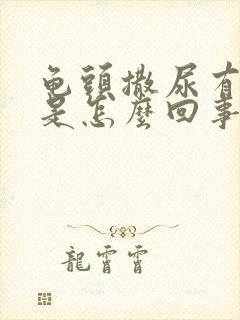 龟頭撒尿有
是怎麼回事
龍霄霄